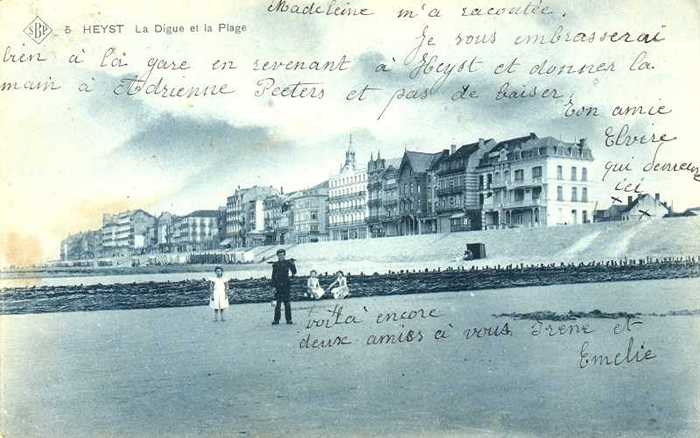 SBP 5 HEYST La Digue et la Plage
Madeleine m'a racoutée.
Je vous embrasserai
bien à la gare en revenant à Heyst et donner la
main à Adrienne Peeters et pas de baiser.
Ton amie
Elvire
qui
ici
voilà encore
deux amies à vous Irene et
Emelie